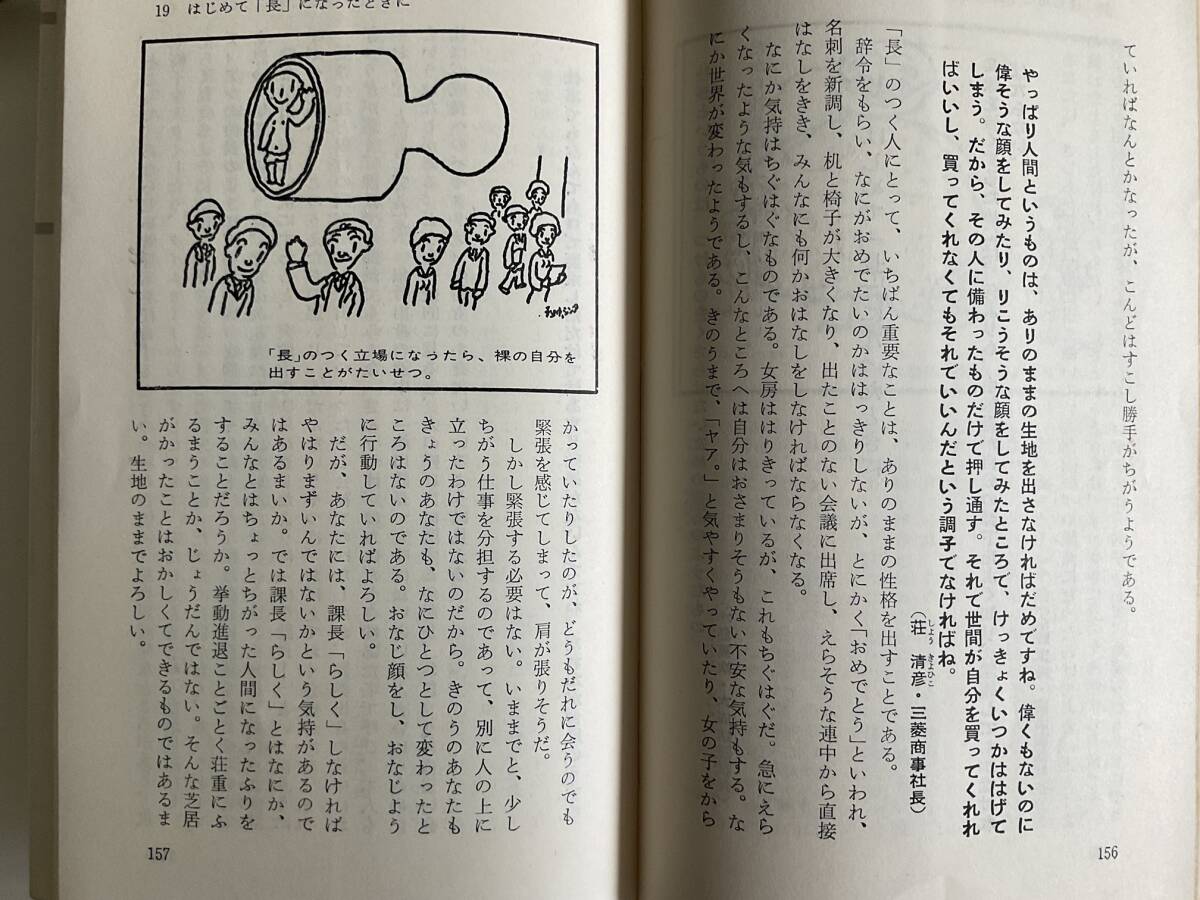 ていればなんとかなったが、こんどはすこし勝手がちがうようである。
やっぱり人間というものは、ありのままの生地を出さなければだめですね。偉くもないのに
偉そうな顔をしてみたり、りこうそうな顔をしてみたところで、けっきょくいつかははげて
しまう。だから、その人に備わったものだけで押し通す。それで世間が自分を買ってくれれ
ばいいし、買ってくれなくてもそれでいいんだという調子でなければね。
（荘　清彦・三菱商事社長）
しよう　きよひこ
「長」のつく人にとって、いちばん重要なことは、ありのままの性格を出すことである。
辞令をもらい、なにがおめでたいのかはっきりしないが、とにかく「おめでとう」といわれ、
名刺を新調し、机と椅子が大きくなり、出たことのない会議に出席し、えらそうな連中から直接
はなしをきき、みんなにも何かおはなしをしなければならなくなる。
なにか気持はちぐはぐなものである。女房ははりきっているが、これもちぐはぐだ。急にえら
くなったような気もするし、こんなところへは自分はおさまりそうもない不安な気持もする。な
にか世界が変わったようである。きのうまで、「ヤア。」と気やすくやっていたり、女の子をから
156
19　はじめて「長」になったときに
「長」のつく立場になったら、裸の自分を
出すことがたいせつ。
かっていたりしたのが、どうもだれに会うのでも
緊張を感じてしまって、肩が張りそうだ。
しかし緊張する必要はない。いままでと、少し
ちがう仕事を分担するのであって、別に人の上に
立ったわけではないのだから。きのうのあなたも
きょうのあなたも、なにひとつとして変わったと
ころはないのである。おなじ顔をし、おなじよう
に行動していればよろしい。
だが、あなたには、課長「らしく」しなければ
やはりまずいんではないかという気持があるので
はあるまいか。では課長「らしく」とはなにか、
みんなとはちょっとちがった人間になったふりを
することだろうか。挙動進退ことごとく荘重にふ
るまうことか、じょうだんではない。そんな芝居
がかったことはおかしくてできるものではあるま
い。生地のままでよろしい。
157